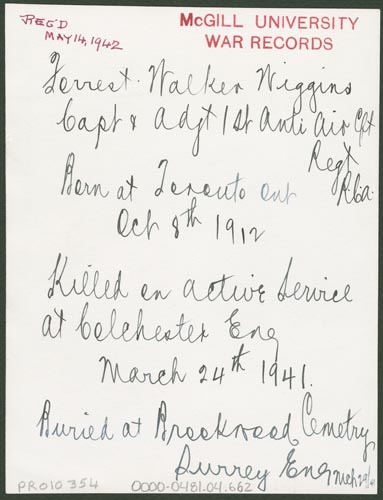 REG'D
MAY 14, 1942
McGILL UNIVERSITY
WAR RECORDS
Forrest Walker Wiggins
Capt & Adgt 1st Anti Air Cft
Regt
R.C.A.
Born at Toronto Ont
Oct 8th 1912
Killed on active Service
at Colchester Eng
March 24th 1941.
Buried at Brookwood Cemetry
Surrey Eng Mch 29/41
PR010354
0000-0481.04.662